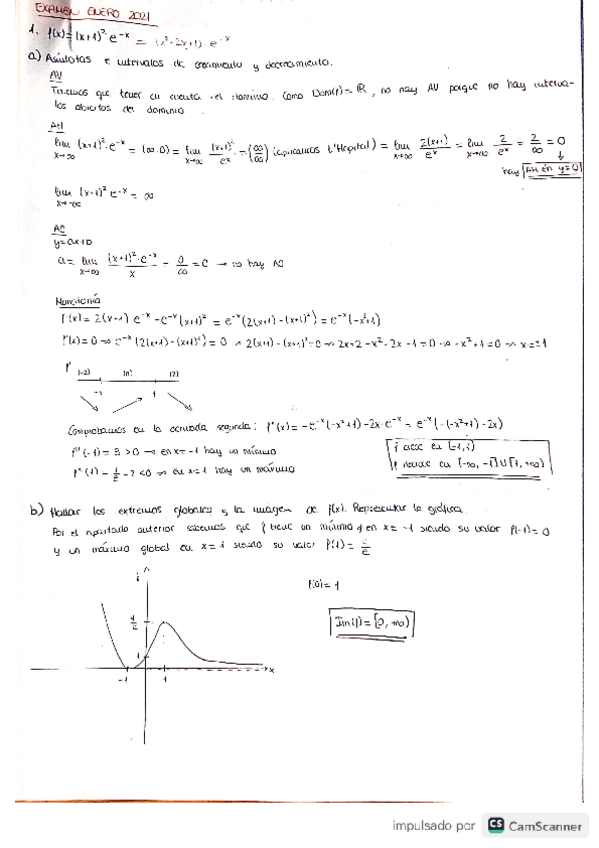 EXAMEN ENERO 2021
1. f(x) = (x+1)² e^-x = (x²+2x+1)·e^-x
a) Asíntotas e intervalos de crecimiento y decrecimiento.
AV
Tenemos que tener en cuenta el dominio. Como Dom(f) = ℝ, no hay AV porque no hay interva-
los abiertos del dominio
AH
lim x→∞ (x+1)²·e^-x = (∞·0) = lim x→∞ (x+1)²/e^x = (∞/∞) (aplicamos L'Hopital) = lim x→∞ 2(x+1)/e^x = lim x→∞ 2/e^x = 2/∞ = 0
↓
hay AH en y=0
lim x→-∞ (x+1)² e^-x = ∞
y = ax+b
a = lim x→∞ (x+1)²·e^-x / x = 0/∞ = 0 → no hay AO
Monotonía
f'(x) = 2(x+1) e^-x - e^-x (x+1)² = e^-x (2(x+1) - (x+1)²) = e^-x (-x²+1)
f'(x) = 0 → e^-x (2(x+1) - (x+1)²) = 0 → 2(x+1) - (x+1)² = 0 → 2x+2 - x² - 2x - 1 = 0 → -x²+1 = 0 → x = ±1
f' (-2) (0) (2)
-1 1
Comprobamos en la derivada segunda: f''(x) = -e^-x (-x²+1) - 2x·e^-x = e^-x (-(-x²+1) - 2x)
f''(-1) = > 0 → en x = -1 hay un mínimo
< 0 → en x = 1 hay un máximo
f crece en (-1,1)
f decrece en (-∞, -1] U [1, +∞)
b) Hallar los extremos globales y la imagen de f(x). Representar la gráfica.
Por el apartado anterior sabemos que f tiene un mínimo en x = -1 siendo su valor f(-1) = 0
y un máximo global en x = 1 siendo su valor f(1) = 4/e
f(0) = 1
Im(f) = [0, +∞)
4/e
1
-1 1 x
impulsado por CS CamScanner